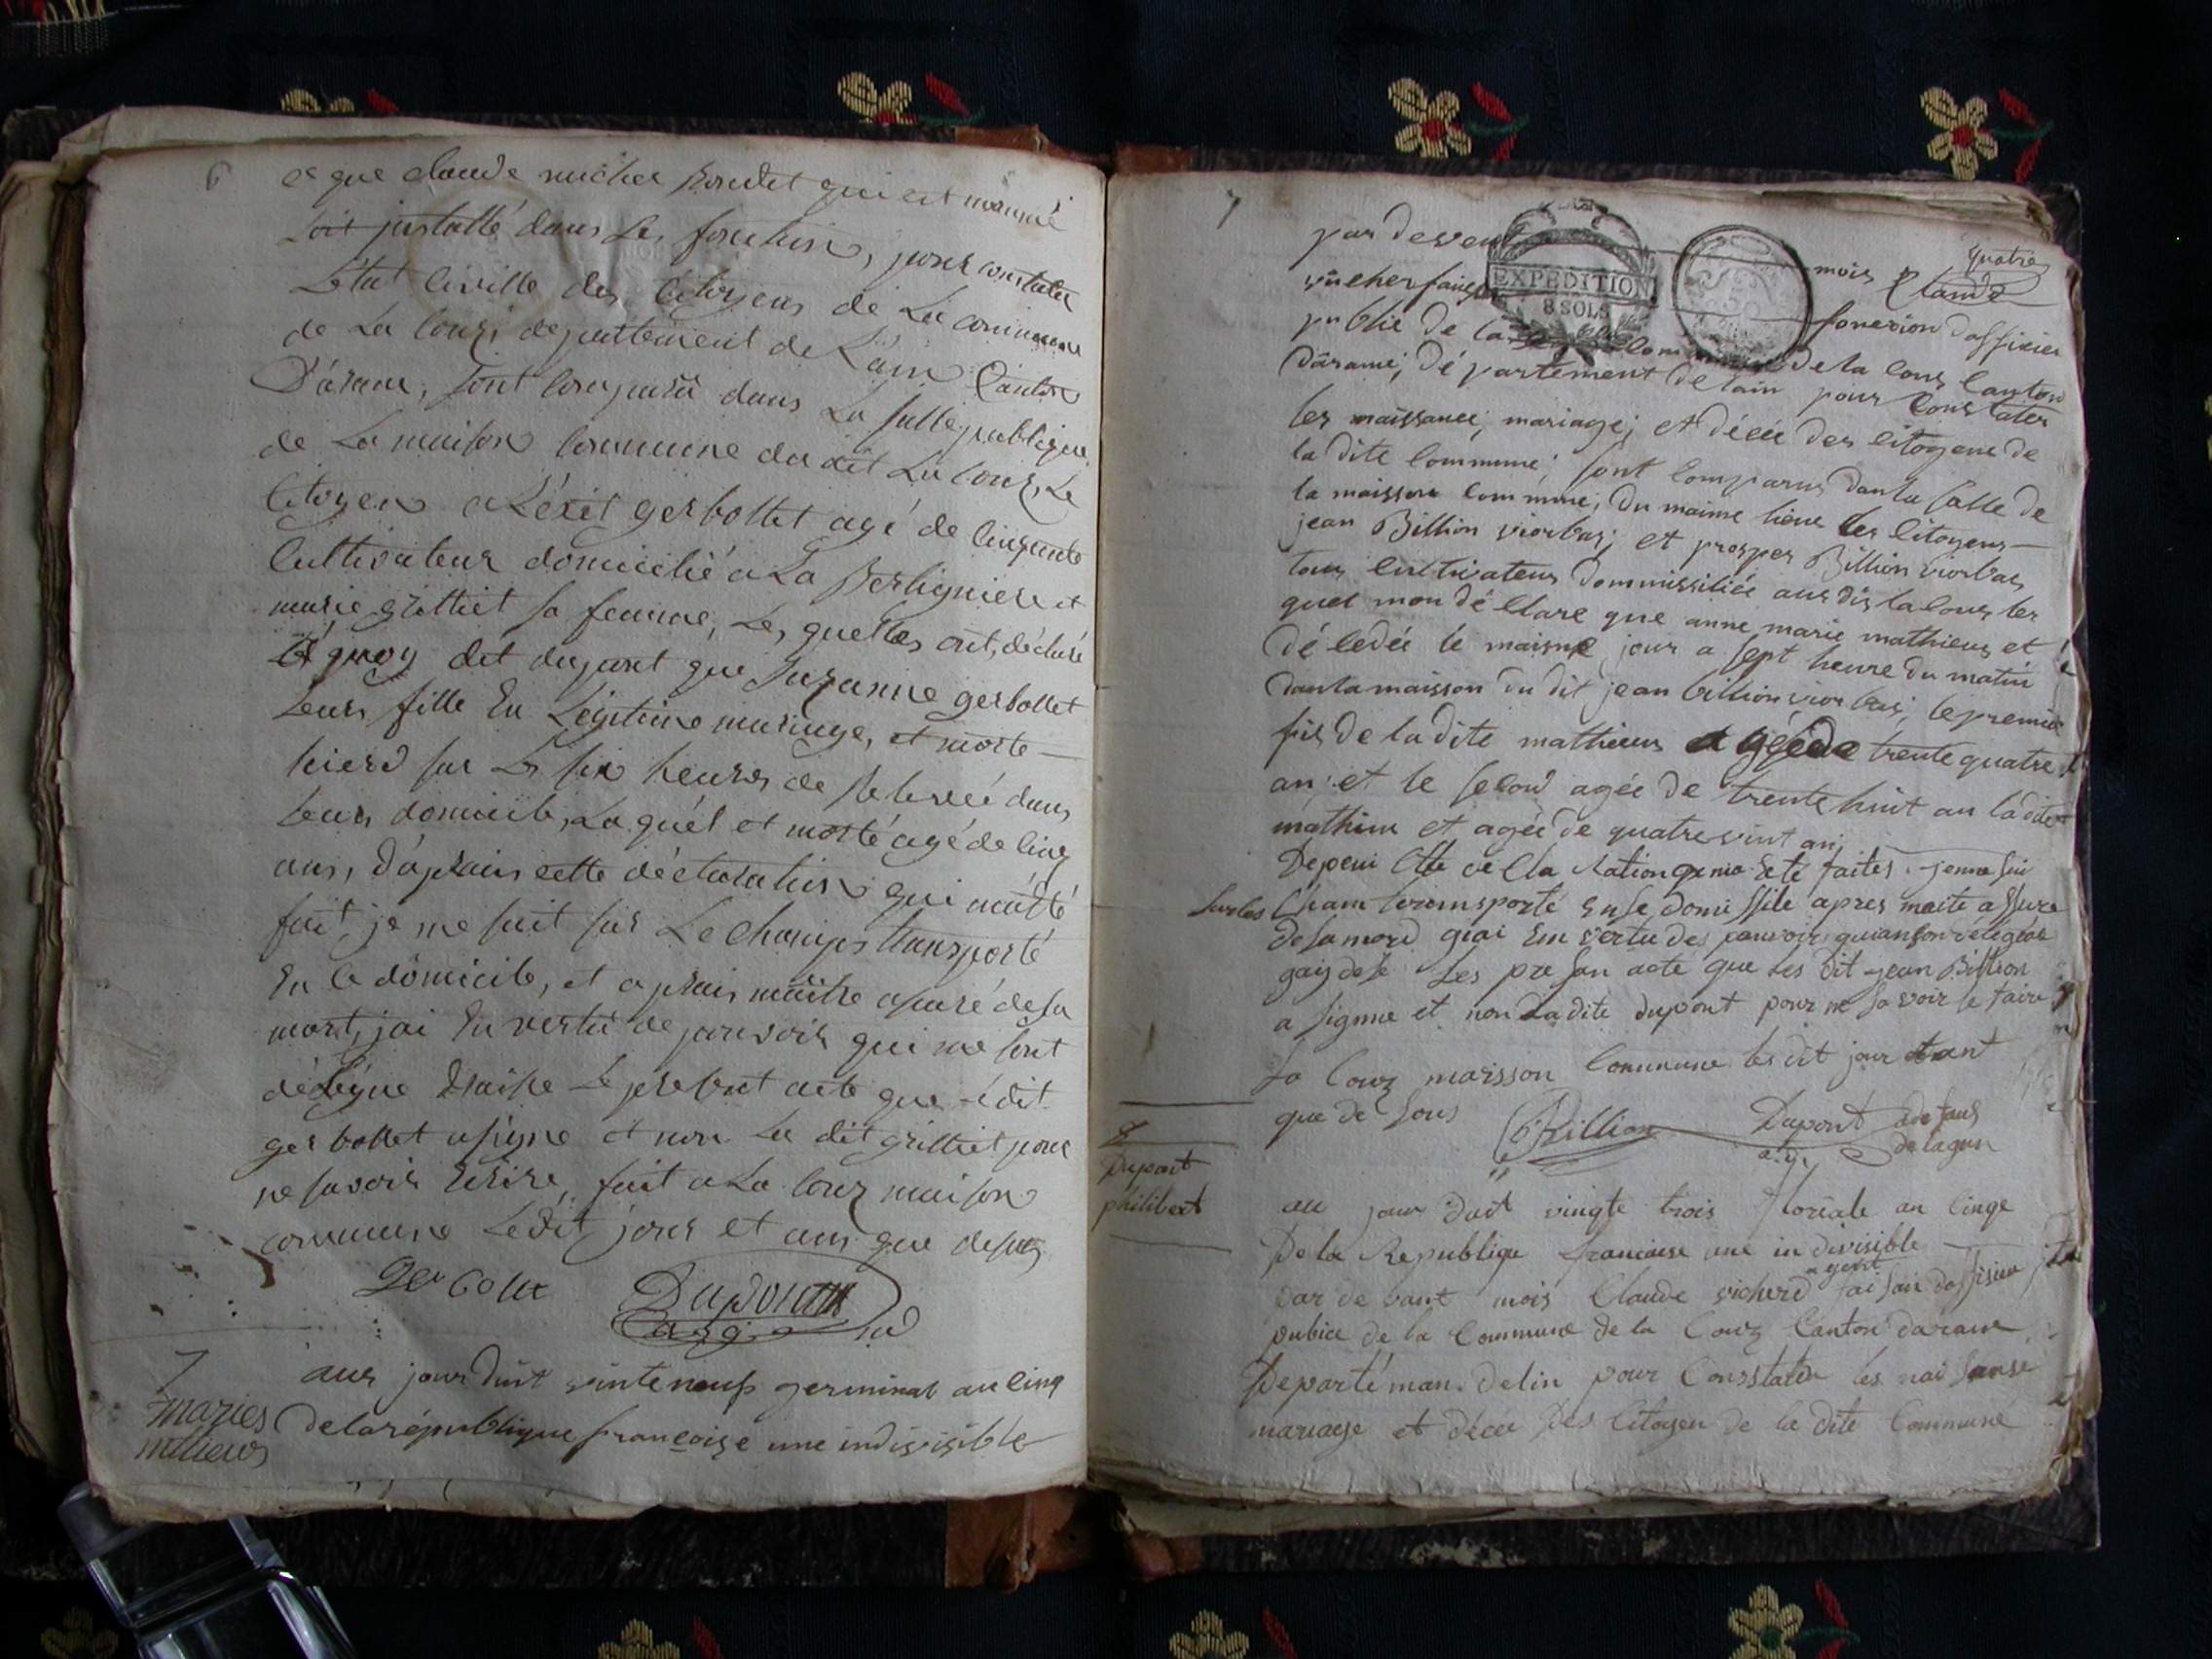 6
ce que claude michel Bondet qui est nommé
soit justallé dans Les fonction, pour constater
L'état Civille des Citoyens de La commune
de La Couz département de L'ain Canton
D'arane, sont comparu dans La salle publique
de La maison Commune du dit La Couz, Le
Citoyen aléxit gerbollet agé de Cinquante
Cultivateur domicilié a La Berlignière et
marie grittiet sa femme, Les quelles ont, déclaré
dit dupont que Suzanne gerbollet
Leurs fille En Légitime mariage, et morte
hierd sur Les six heures de relevée dans
Leurs domicile, La quél et morté agé de Cinq
ans, D'aprais cette déclaration qui m'a étté
fait, je me suit sur Le Champs transporté
En Ce domicile, et aprais maitre assuré de sa
mort, jai En vertu de pouvoir qui me sont
délégue Draisse Le présent acte que Ledit
gerbollet a signe et non La dit grittiet pour
ne savoir Ecrire, fait a La Couz maison
commune Ledit jour et ans que desus
Gerbollet Dupont
7
aus jourduit vinteneufs germinal an cinq
maries
milieus
de la république françoise une indivisible
7
par devent mois Claude
quatre
vucher faisent fonction d'offisier
publie de la commune de la Couz Canton
darane, département de lain pour Constater
les naissance, mariage, et décée des citoyene de
la dite Commune; sont Comparus dan la salle de
la maisson Commune, du maime lieue les Citoyens
jean Billion viorbas; et prosper Billion viorbas
tous Cultivateur dommissiliée aus dis la Couz les
quel mon déClare que anne marie mathieus et
décedée le maisme jour a sept heure du matin
dan la maisson du dit jean billion viorbas; le premie
fis de la dite mathieus agée de trente quatre
an; et le second agée de trente huit an la dite
mathieu et agée de quatre vint an;
Depeui Cete deClaration qu ma Eté faites. jeme sui
sur les Cham transporté en se domissile apres maite assure
de sa mord giai em vertu des pouvoir quianson délégias
gaidese Les presan acte que Les dit jean Billion
a signe et non La dite dupont pour ne savoir le faire
La Couz maisson Commune les dit jour et ant
que de sous B Billion Dupont ade faus
a.g. de lagan
8
Dupont
philibert
au jour duit vingte trois floréale an Cinge
De la Republique francaise une indivisible
par devant mois Claude vicherd agent faisan doffisier
pubice de la Commune de la Couz Canton darane
Departéman. delin pour Consstater les naisanse
mariage et décée Des Citoyen de la dite Commune
EXPEDITION
8 SOLS